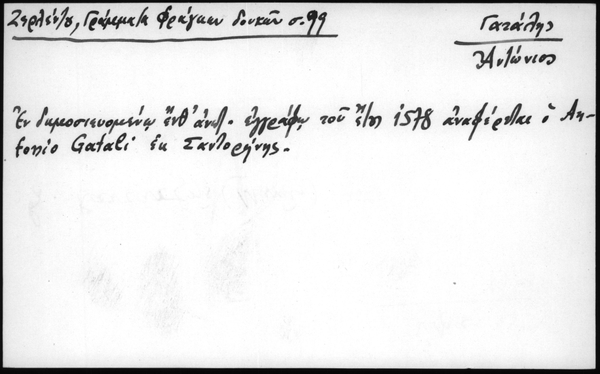 Ζερλέντου, Γράμματα Φράγκων δουκῶν σ. 99
Γατάλης
Ἀντώνιος
Ἐν δημοσιευομένῳ ἔνθ' ἀνωτ. ἐγγράφῳ τοῦ ἔτη 1578 ἀναφέρεται ὁ An-
tonio Gatali ἐκ Σαντορήνης.